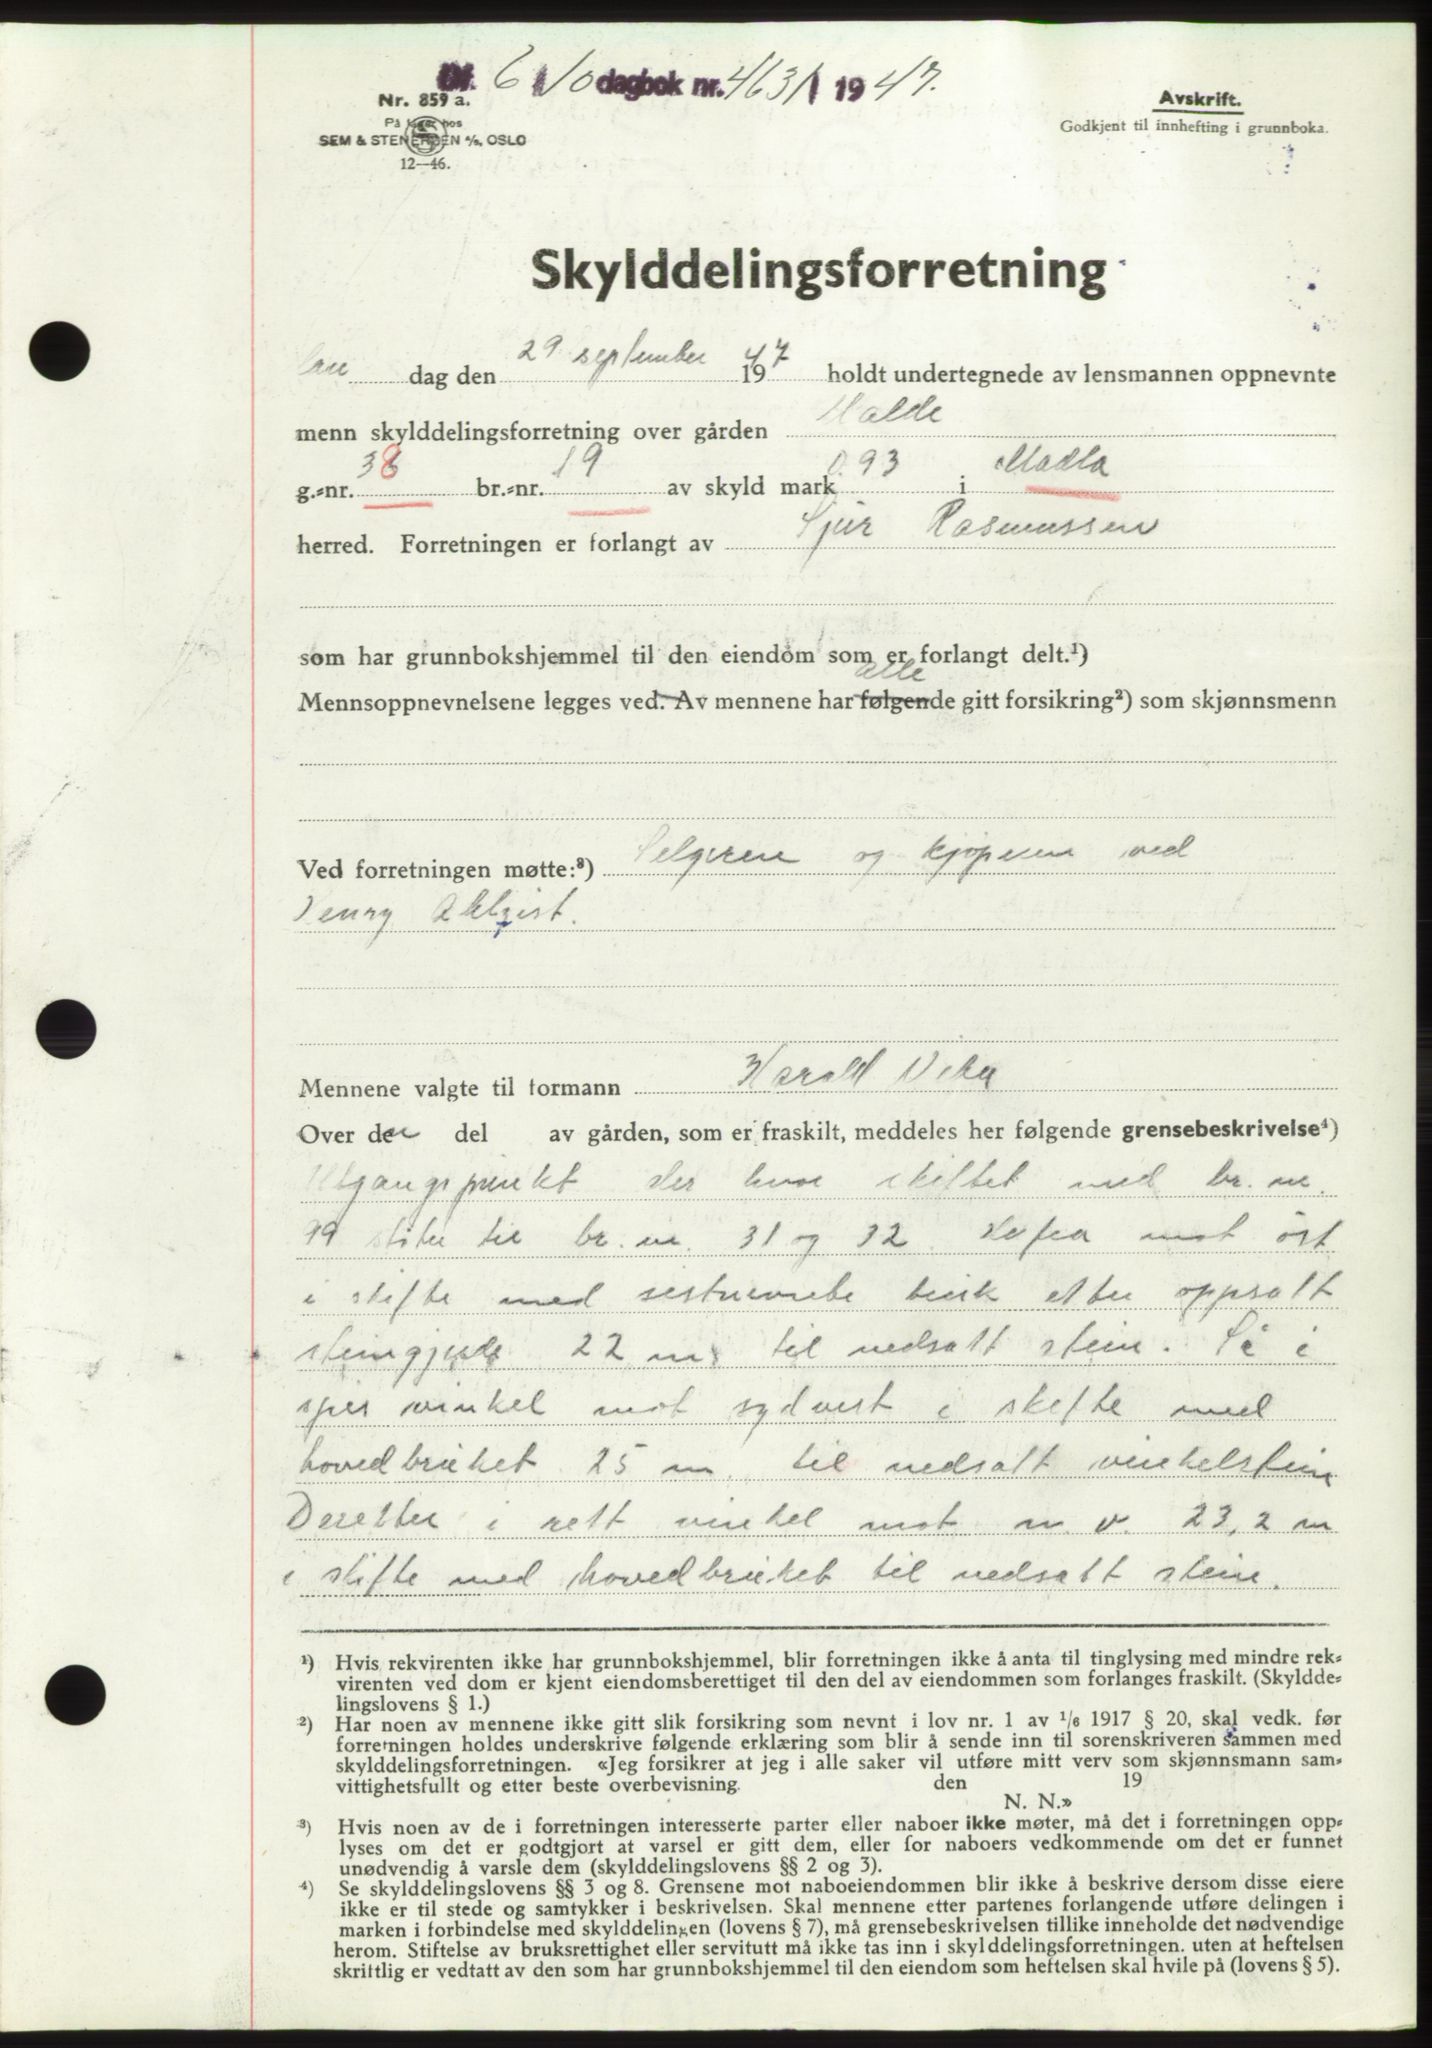 6/10 dagbok nr. 4631 1947.
Nr. 859 a.
På lager hos
SEM & STENERSEN A/S, OSLO
12—46.
Avskrift.
Godkjent til innhefting i grunnboka.
Skylddelingsforretning
dag den 29 september 1947 holdt undertegnede av lensmannen oppnevnte
menn skylddelingsforretning over gården Malde
g.=nr. 38 br.=nr. 19 av skyld mark 0.93 i Madla
herred. Forretningen er forlangt av Sjur Rasmussen
som har grunnbokshjemmel til den eiendom som er forlangt delt.¹)
alle
Mennsoppnevnelsene legges ved. Av mennene har følgende gitt forsikring²) som skjønnsmenn
Ved forretningen møtte:³) Selgeren og kjøperen ved
Henry Ahlqist.
Mennene valgte til formann Harald Vika
Over den del av gården, som er fraskilt, meddeles her følgende grensebeskrivelse⁴)
Utgangspunkt der hvor skiftet med br. nr.
99 støter til br. nr. 31 og 32. Derfra mot øst
i skifte med sistnevnte bruk etter oppsatt
steingjerde 22 m. til nedsatt stein. Så i
spis vinkel mot sydvest i skifte med
hovedbruket 25 m. til nedsatt vinkelstein
Deretter i rett vinkel mot n. v. 23,2 m
i skifte med hovedbruket til nedsatt stein.
¹) Hvis rekvirenten ikke har grunnbokshjemmel, blir forretningen ikke å anta til tinglysing med mindre rek=
virenten ved dom er kjent eiendomsberettiget til den del av eiendommen som forlanges fraskilt. (Skyldde=
lingslovens § 1.)
²) Har noen av mennene ikke gitt slik forsikring som nevnt i lov nr. 1 av 1/6 1917 § 20, skal vedk. før
forretningen holdes underskrive følgende erklæring som blir å sende inn til sorenskriveren sammen med
skylddelingsforretningen. «Jeg forsikrer at jeg i alle saker vil utføre mitt verv som skjønnsmann sam=
vittighetsfullt og etter beste overbevisning. den 19
N. N.»
³) Hvis noen av de i forretningen interesserte parter eller naboer ikke møter, må det i forretningen opp=
lyses om det er godtgjort at varsel er gitt dem, eller for naboers vedkommende om det er funnet
unødvendig å varsle dem (skylddelingslovens §§ 2 og 3).
⁴) Se skylddelingslovens §§ 3 og 8. Grensene mot naboeiendommen blir ikke å beskrive dersom disse eiere
ikke er til stede og samtykker i beskrivelsen. Skal mennene etter partenes forlangende utføre delingen i
marken i forbindelse med skylddelingen (lovens § 7), må grensebeskrivelsen tillike inneholde det nødvendige
herom. Stiftelse av bruksrettighet eller servitutt må ikke tas inn i skylddelingsforretningen. uten at heftelsen
skriftlig er vedtatt av den som har grunnbokshjemmel til den eiendom som heftelsen skal hvile på (lovens § 5).